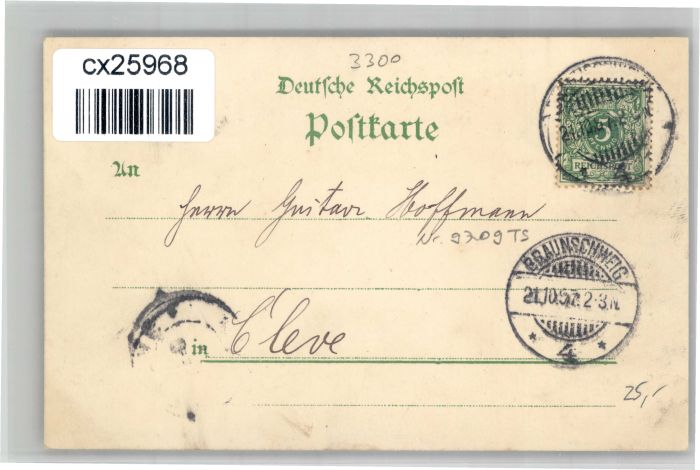 cx25968
3300
Deutsche Reichspost
Postkarte
5
REICHSPOST
21.10.97
4
An
Herrn Gustav Hoffmann
Nr. 9709 TS
BRAUNSCHWEIG
21.10.97. 2-3N.
* 4 *
in Cleve
25,-